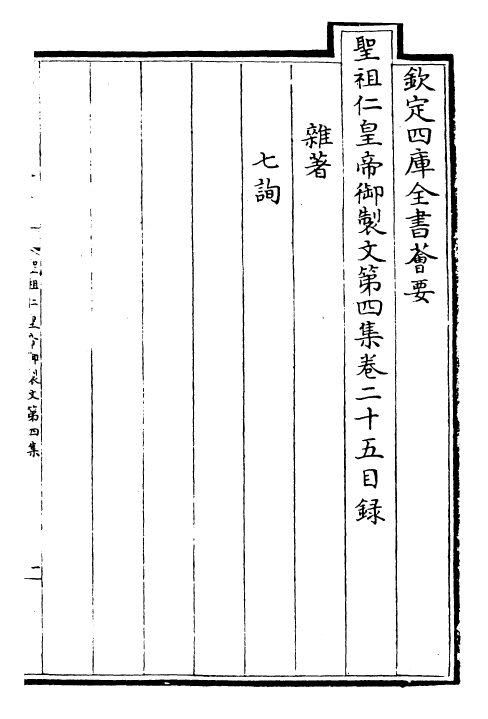 欽定四庫全書薈要
聖祖仁皇帝御製文第四集卷二十五目録
雜著
七詢
聖祖仁皇帝御製文第四集